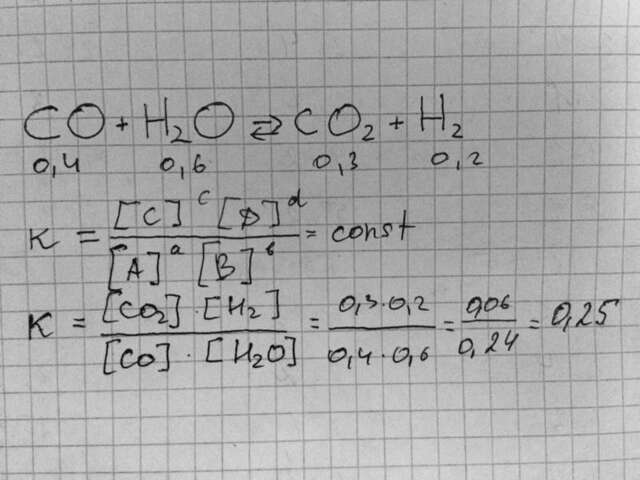 CO + H₂O ⇄ CO₂ + H₂
0,4 0,6 0,3 0,2
K = [C]ᶜ [D]ᵈ / [A]ᵃ [B]ᵇ = const
K = [CO₂] · [H₂] / [CO] · [H₂O] = 0,3 · 0,2 / 0,4 · 0,6 = 0,06 / 0,24 = 0,25